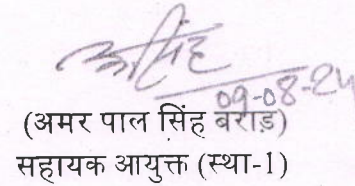 09-08-24
(अमर पाल सिंह बराड़)
सहायक आयुक्त (स्था-1)